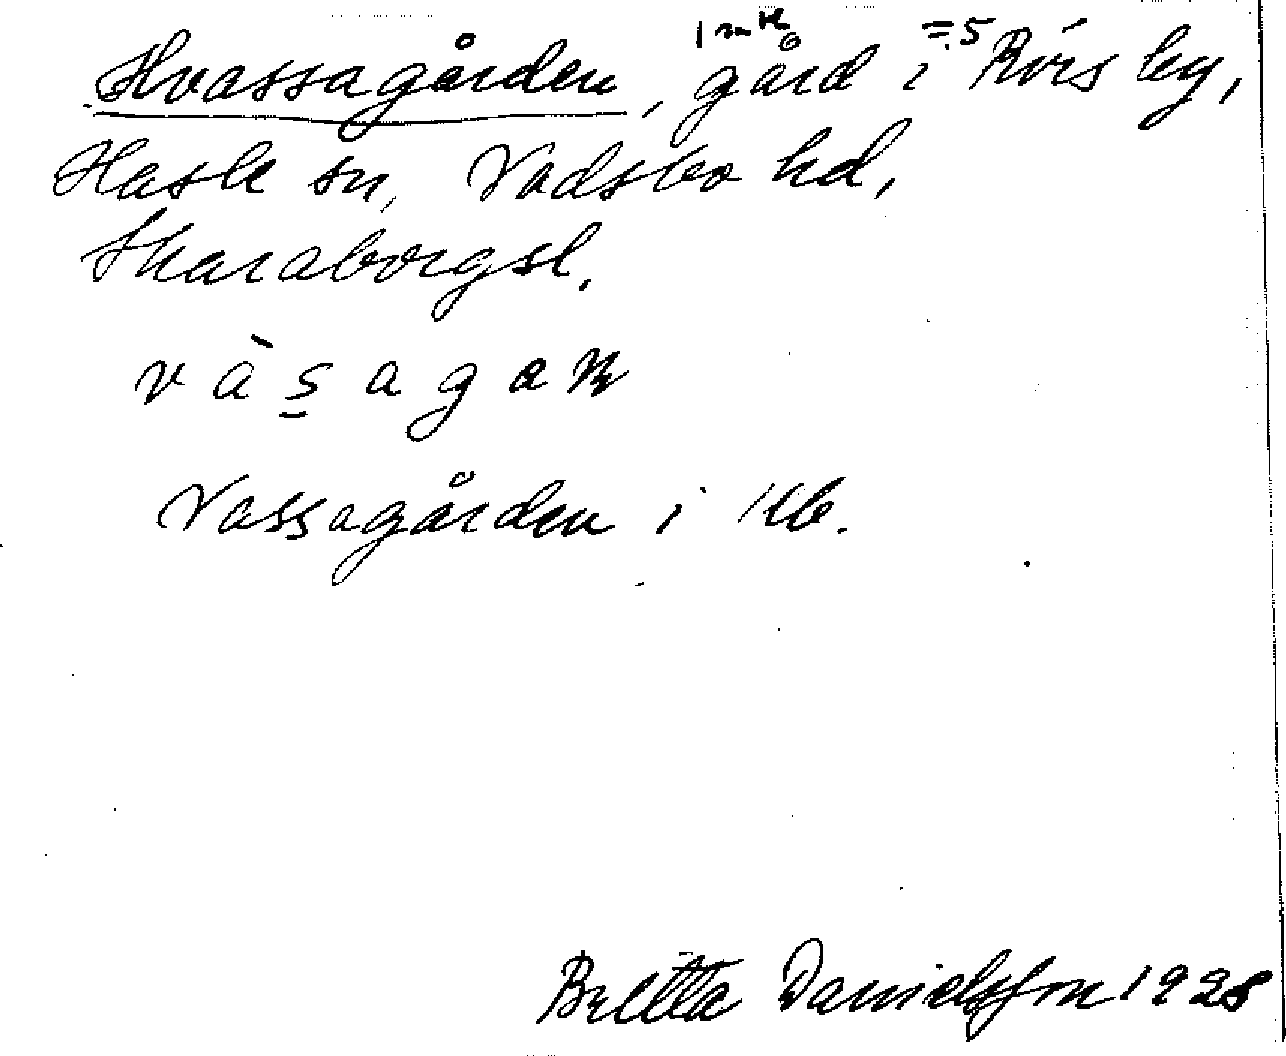 1 mtl =.5
Hvassagården, gård i Rörs by,
Hasle sn, Vadsbo hd,
Skaraborgsl.
v à s a g a n
Vassagården i kb.
Britta Danielsson 1928